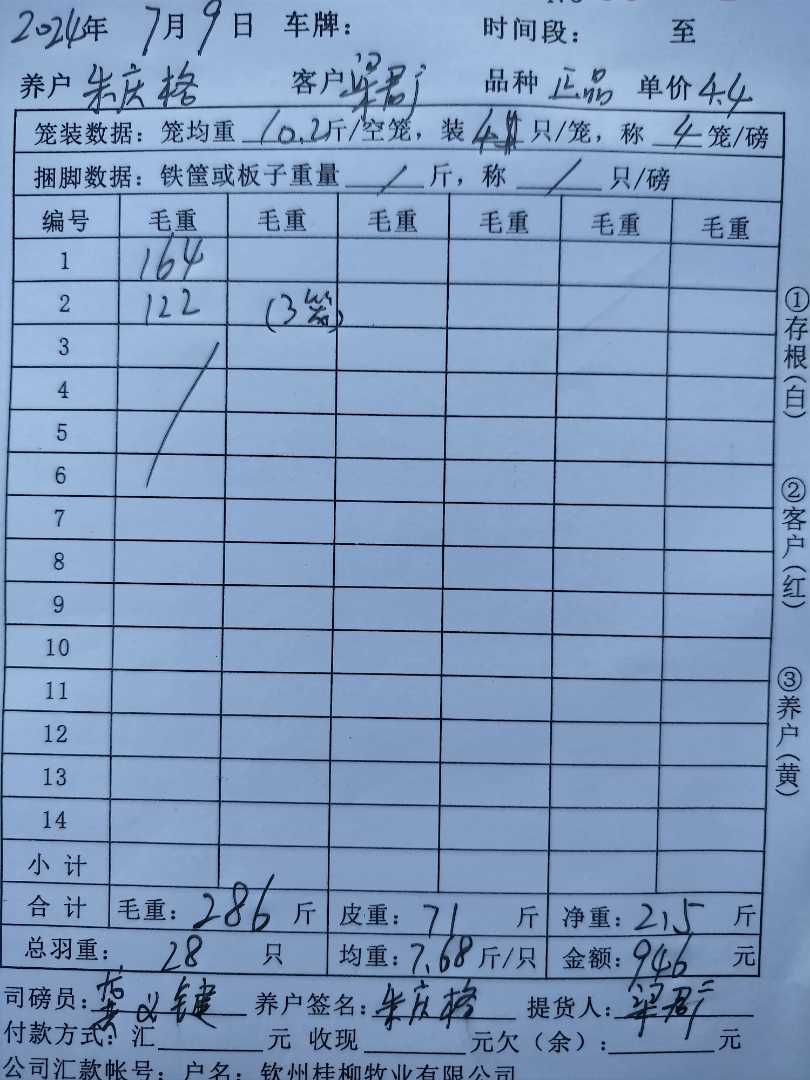 2024年 7月9日 车牌： 时间段： 至
养户 朱庆格 客户 梁君广 品种 正品 单价 4.4
笼装数据：笼均重 10.2斤/空笼，装 4 只/笼，称 4 笼/磅
捆脚数据：铁筐或板子重量 / 斤，称 / 只/磅
编号 毛重 毛重 毛重 毛重 毛重 毛重
1 164
2 122 (3笼)
3
4
5
6
7
8
9
10
11
12
13
14
小计
合计 毛重：286 斤 皮重：71 斤 净重：215 斤
总羽重：28 只 均重：7.68斤/只 金额：946 元
司磅员： 养户签名：朱庆格 提货人：梁君广
付款方式：汇 元 收现 元欠（余）： 元
公司汇款帐号：户名：钦州桂柳牧业有限公司
①存根(白)
②客户(红)
③养户(黄)